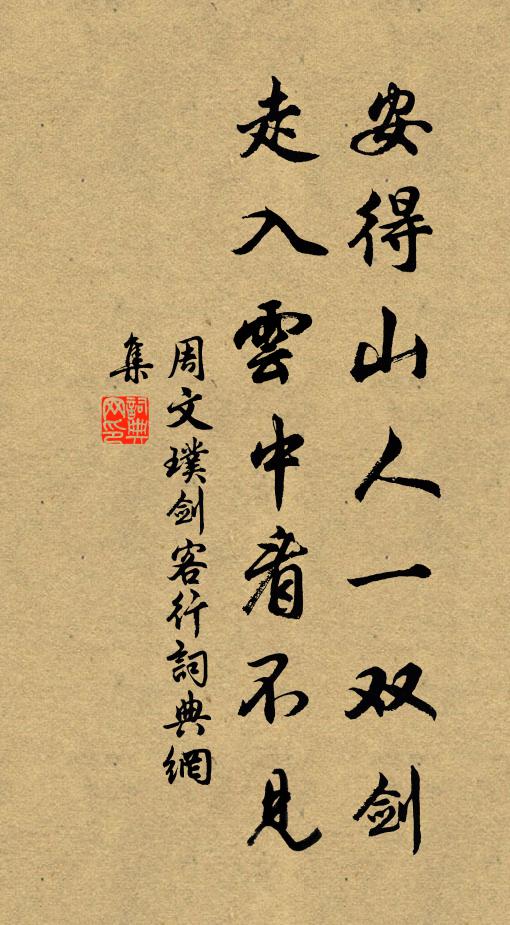 安得山人一双剑
走入雲中看不見
周文璞剑客行詞典網
集
詞典
网印